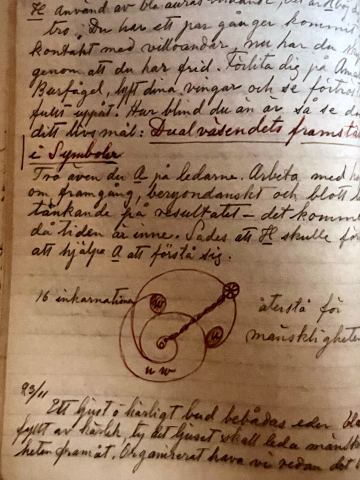 H använd av blå auras
tro. Du har ett par gånger kommit i
kontakt med villoandar, nu har du
genom att du har frid. Förlita dig på
Burfågel, lyft dina vingar och se
fullt uppåt. Hur blind du än är, så se
ditt livsmål: Dualväsendets framställ
i Symboler
Tro även du A på ledarne. Arbeta med
om framgång, beryondanskt och blott
tänkande på resultatet – det kommer
då tiden är inne. Sades att H skulle för
att hjälpe A att förstå sig:
16 inkarnationer
återstå för
mänskligheten
u w
23/11
Ett ljust o kärligt bud bebådas eder
fyllt av kärlek, ty det ljuset skall leda mänsk
heten framåt. Organiserat hava vi redan det